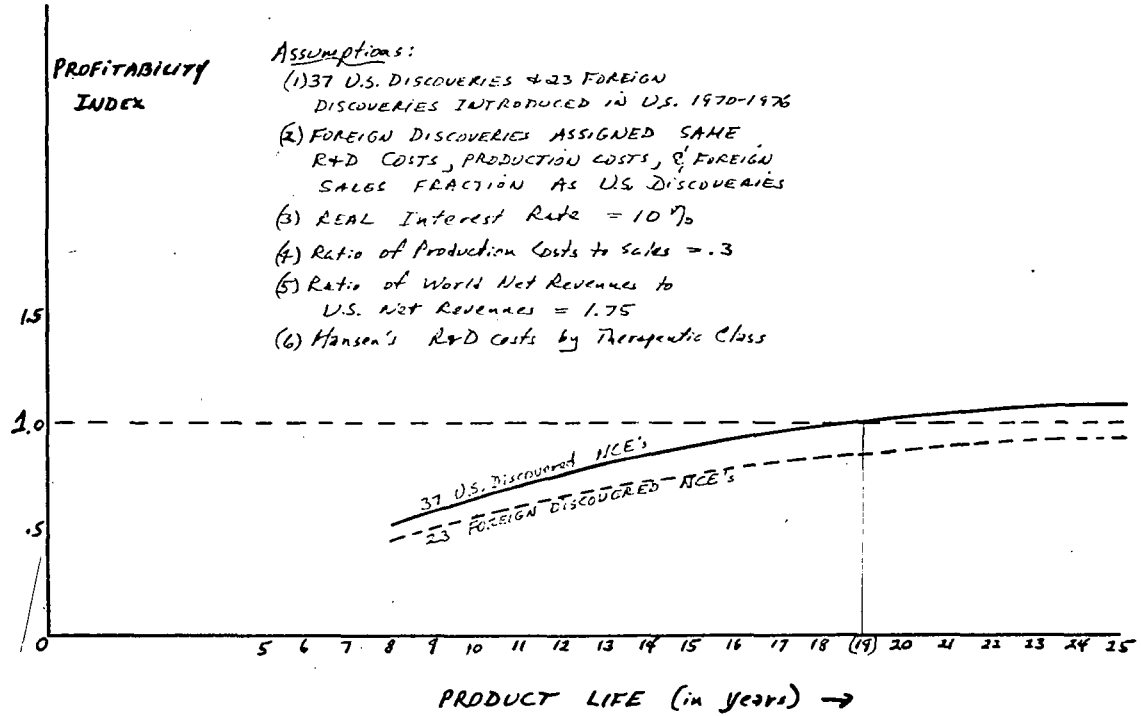 PROFITABILITY
INDEX
Assumptions:
(1) 37 U.S. DISCOVERIES & 23 FOREIGN
DISCOVERIES INTRODUCED IN U.S. 1970-1976
(2) FOREIGN DISCOVERIES ASSIGNED SAME
R&D COSTS, PRODUCTION COSTS, & FOREIGN
SALES FRACTION AS U.S. DISCOVERIES
(3) REAL Interest Rate = 10%
(4) Ratio of Production Costs to Sales = .3
(5) Ratio of World Net Revenues to
U.S. Net Revenues = 1.75
(6) Hansen's R&D costs by Therapeutic Class
1.5
1.0
.5
0
37 U.S. Discovered NCE's
23 FOREIGN DISCOVERED NCE's
5 6 7 8 9 10 11 12 13 14 15 16 17 18 (19) 20 21 22 23 24 25
PRODUCT LIFE (in years) →